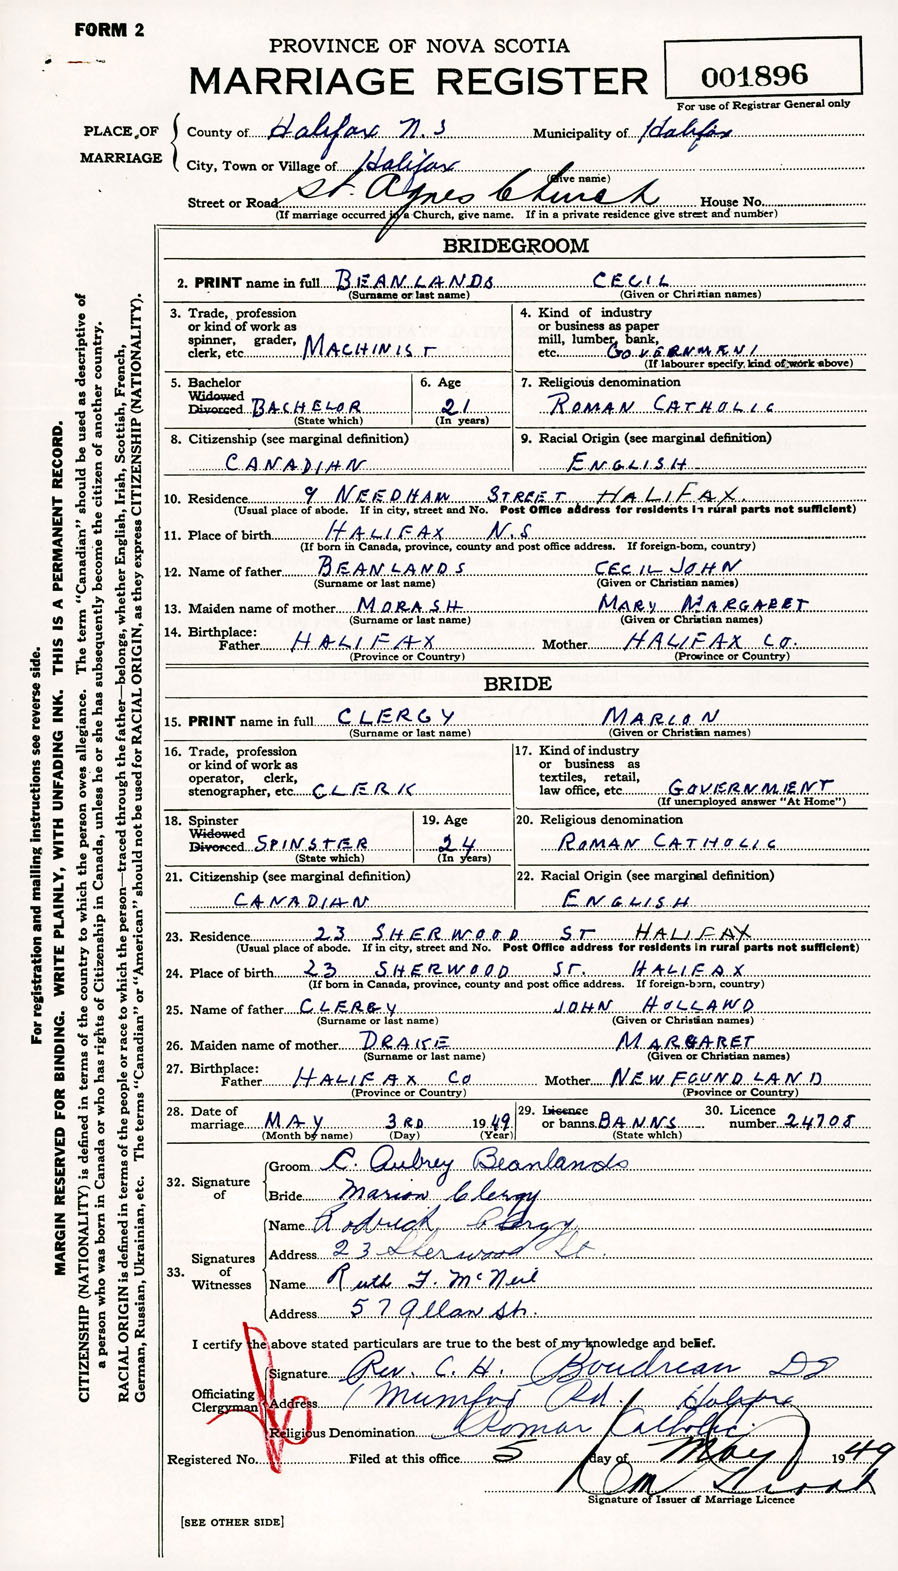 FORM 2
PROVINCE OF NOVA SCOTIA
MARRIAGE REGISTER
001896
For use of Registrar General only
PLACE OF MARRIAGE
County of Halifax N.S Municipality of Halifax
City, Town or Village of Halifax
(Give name)
Street or Road St. Agnes Church House No.
(If marriage occurred in a Church, give name. If in a private residence give street and number)
BRIDEGROOM
2. PRINT name in full BEANLANDS CECIL
(Surname or last name) (Given or Christian names)
3. Trade, profession
or kind of work as
spinner, grader,
clerk, etc. MACHINIST
4. Kind of industry
or business as paper
mill, lumber, bank,
etc. GOVERNMENT
(If labourer specify, kind of work above)
5. Bachelor
Widowed
Divorced BACHELOR
(State which)
6. Age
21
(In years)
7. Religious denomination
ROMAN CATHOLIC
8. Citizenship (see marginal definition)
CANADIAN
9. Racial Origin (see marginal definition)
ENGLISH
10. Residence 9 NEEDHAM STREET HALIFAX.
(Usual place of abode. If in city, street and No. Post Office address for residents in rural parts not sufficient)
11. Place of birth HALIFAX N.S
(If born in Canada, province, county and post office address. If foreign-born, country)
12. Name of father BEANLANDS CECIL JOHN
(Surname or last name) (Given or Christian names)
13. Maiden name of mother MORASH MARY MARGARET
(Surname or last name) (Given or Christian names)
14. Birthplace:
Father HALIFAX Mother HALIFAX CO.
(Province or Country) (Province or Country)
BRIDE
15. PRINT name in full CLERGY MARION
(Surname or last name) (Given or Christian names)
16. Trade, profession
or kind of work as
operator, clerk,
stenographer, etc. CLERK
17. Kind of industry
or business as
textiles, retail,
law office, etc. GOVERNMENT
(If unemployed answer "At Home")
18. Spinster
Widowed
Divorced SPINSTER
(State which)
19. Age
24
(In years)
20. Religious denomination
ROMAN CATHOLIC
21. Citizenship (see marginal definition)
CANADIAN
22. Racial Origin (see marginal definition)
ENGLISH
23. Residence 23 SHERWOOD ST HALIFAX
(Usual place of abode. If in city, street and No. Post Office address for residents in rural parts not sufficient)
24. Place of birth 23 SHERWOOD ST. HALIFAX
(If born in Canada, province, county and post office address. If foreign-born, country)
25. Name of father CLERGY JOHN HOLLAND
(Surname or last name) (Given or Christian names)
26. Maiden name of mother DRAKE MARGARET
(Surname or last name) (Given or Christian names)
27. Birthplace:
Father HALIFAX CO Mother NEWFOUNDLAND
(Province or Country) (Province or Country)
28. Date of
marriage MAY 3RD 1949
(Month by name) (Day) (Year)
29. Licence
or banns BANNS
(State which)
30. Licence
number 24708
32. Signature of
Groom C. Aubrey Beanlands
Bride Marion Clergy
33. Signatures of Witnesses
Name Rodrick Clergy
Address 23 Sherwood St.
Name Ruth F. McNeil
Address 57 Allan St.
I certify the above stated particulars are true to the best of my knowledge and belief.
Officiating Clergyman
Signature Rev. C. H. Boudreau
Address Mumford Rd. Halifax
Religious Denomination Roman Catholic
Registered No. Filed at this office 5 day of May 1949
Signature of Issuer of Marriage Licence
[SEE OTHER SIDE]
For registration and mailing instructions see reverse side.
MARGIN RESERVED FOR BINDING. WRITE PLAINLY, WITH UNFADING INK. THIS IS A PERMANENT RECORD.
CITIZENSHIP (NATIONALITY) is defined in terms of the country to which the person owes allegiance. The term "Canadian" should be used as descriptive of
a person who was born in Canada or who has rights of Citizenship in Canada, unless he or she has subsequently become the citizen of another country.
RACIAL ORIGIN is defined in terms of the people or race to which the person—traced through the father—belongs, whether English, Irish, Scottish, French,
German, Russian, Ukrainian, etc. The terms "Canadian" or "American" should not be used for RACIAL ORIGIN, as they express CITIZENSHIP (NATIONALITY).